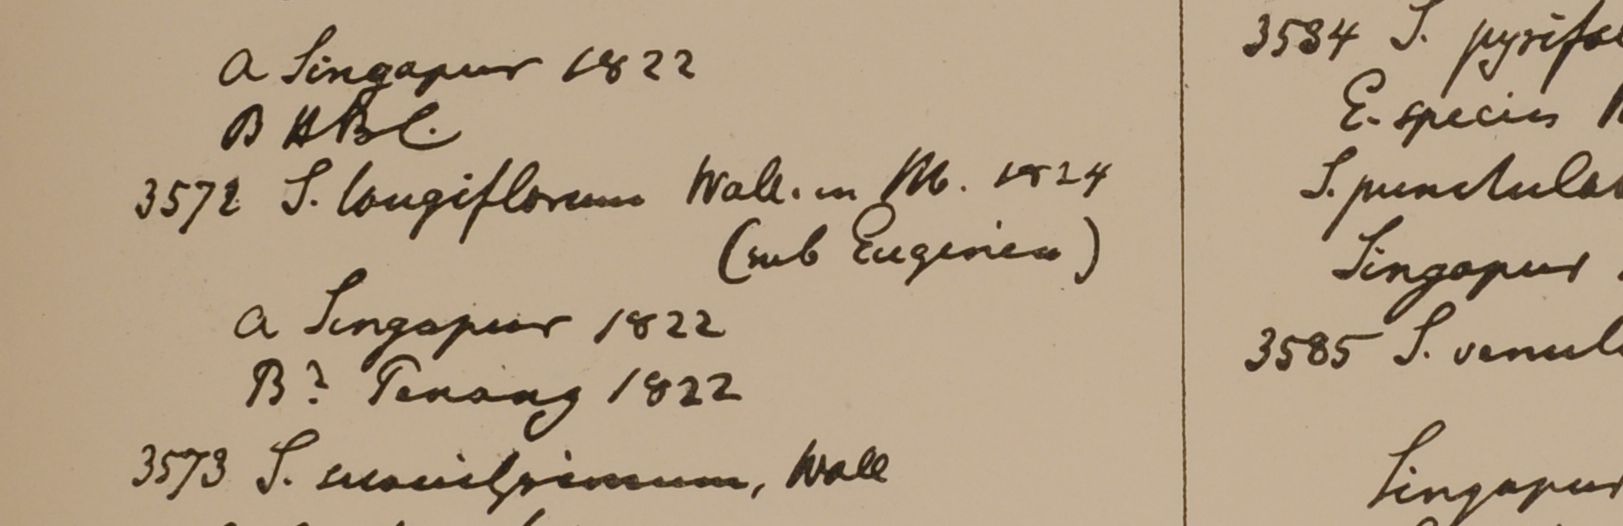 a Singapur 1822
B HBC.
3572 S. longiflorum Wall. in Hb. 1824
(sub Eugenia)
a Singapur 1822
B? Penang 1822
3573 S. suavissimum, Wall
3584 S. pyrifo
E. species
S. punctula
Singapur
3585 S. venul
Singapur